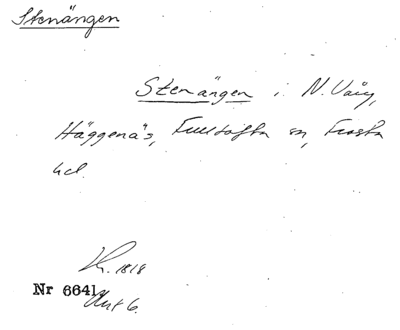 Stenängen
Stenängen i N. Vång,
Häggenäs, Fulltofta sn, Frosta
hd.
1818
Nr 6641
Akt 6.